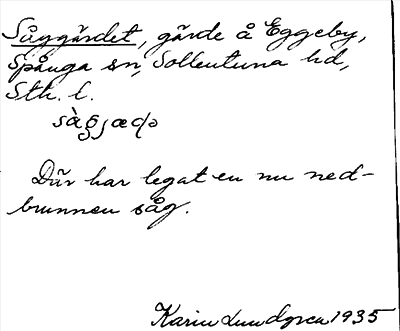 Såggärdet, gärde å Eggeby,
Spånga sn, Sollentuna hd,
Sth. l.
Där har legat en nu ned-
brunnen såg.
Karin Lundgren 1935